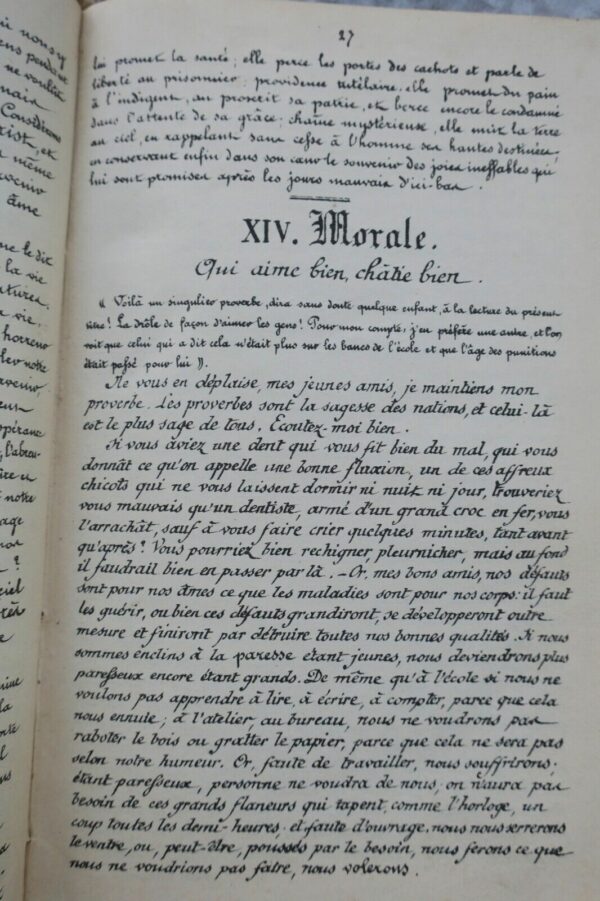 ui nous y
ens pendant
ne voulut
mais
Considérons
rist, et
même
avenir
âme
re le dit
la vie
atures.
vie.
horreur
notre
avenir,
pérance
notre
age
?
ciel
la
27
lui promet la santé; elle perce les portes des cachots et parle de
liberté au prisonnier; providence tutélaire, elle promet du pain
à l'indigent, au proscrit sa patrie, et berce encore le condamné
dans l'attente de sa grâce; chaîne mystérieuse, elle unit la terre
au ciel, en rappelant sans cesse à l'homme ses hautes destinées,
en conservant enfin dans son cœur le souvenir des joies ineffables qui
lui sont promises après les jours mauvais d'ici-bas.
XIV. Morale.
Qui aime bien, châtie bien.
« Voilà un singulier proverbe, dira sans doute quelque enfant, à la lecture du présent
titre! La drôle de façon d'aimer les gens! Pour mon compte, j'en préfère une autre, et l'on
voit que celui qui a dit cela n'était plus sur les bancs de l'école et que l'âge des punitions
était passé pour lui ».
Ne vous en déplaise, mes jeunes amis, je maintiens mon
proverbe. Les proverbes sont la sagesse des nations, et celui-là
est le plus sage de tous. Ecoutez-moi bien.
Si vous aviez une dent qui vous fit bien du mal, qui vous
donnât ce qu'on appelle une bonne fluxion, un de ces affreux
chicots qui ne vous laissent dormir ni nuit ni jour, trouveriez
vous mauvais qu'un dentiste, armé d'un grand croc en fer, vous
l'arrachât, sauf à vous faire crier quelques minutes, tant avant
qu'après? Vous pourriez bien rechigner, pleurnicher, mais au fond
il faudrait bien en passer par là. — Or, mes bons amis, nos défauts
sont pour nos âmes ce que les maladies sont pour nos corps: il faut
les guérir, ou bien ces défauts grandiront, se développeront outre
mesure et finiront par détruire toutes nos bonnes qualités. Si nous
sommes enclins à la paresse étant jeunes, nous deviendrons plus
paresseux encore étant grands. De même qu'à l'école si nous ne
voulons pas apprendre à lire, à écrire, à compter, parce que cela
nous ennuie; à l'atelier, au bureau, nous ne voudrons pas
raboter le bois ou gratter le papier, parce que cela ne sera pas
selon notre humeur. Or, faute de travailler, nous souffrirons;
étant paresseux, personne ne voudra de nous, on n'aura pas
besoin de ces grands flaneurs qui tapent, comme l'horloge, un
coup toutes les demi-heures; et faute d'ouvrage, nous nous serrerons
le ventre, ou, peut-être, poussés par le besoin, nous ferons ce que
nous ne voudrions pas faire, nous volerons.